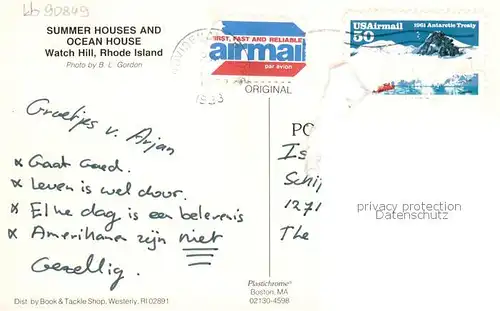 kb 90849
SUMMER HOUSES AND
OCEAN HOUSE
Watch Hill, Rhode Island
Photo by B. L. Gordon
FIRST, FAST AND RELIABLE
airmail
par avion
ORIGINAL
1993
USAirmail
50
1961 Antarctic Treaty
Groetjes v. Arjan
x Gaat Goed.
x Leven is wel duur.
x Elke dag is een belevenis
x Amerikanen zijn niet
Gezellig.
PO
Is
Schij
1271
The
privacy protection
Datenschutz
Plastichrome®
Boston, MA
02130-4598
Dist by Book & Tackle Shop, Westerly, RI 02891